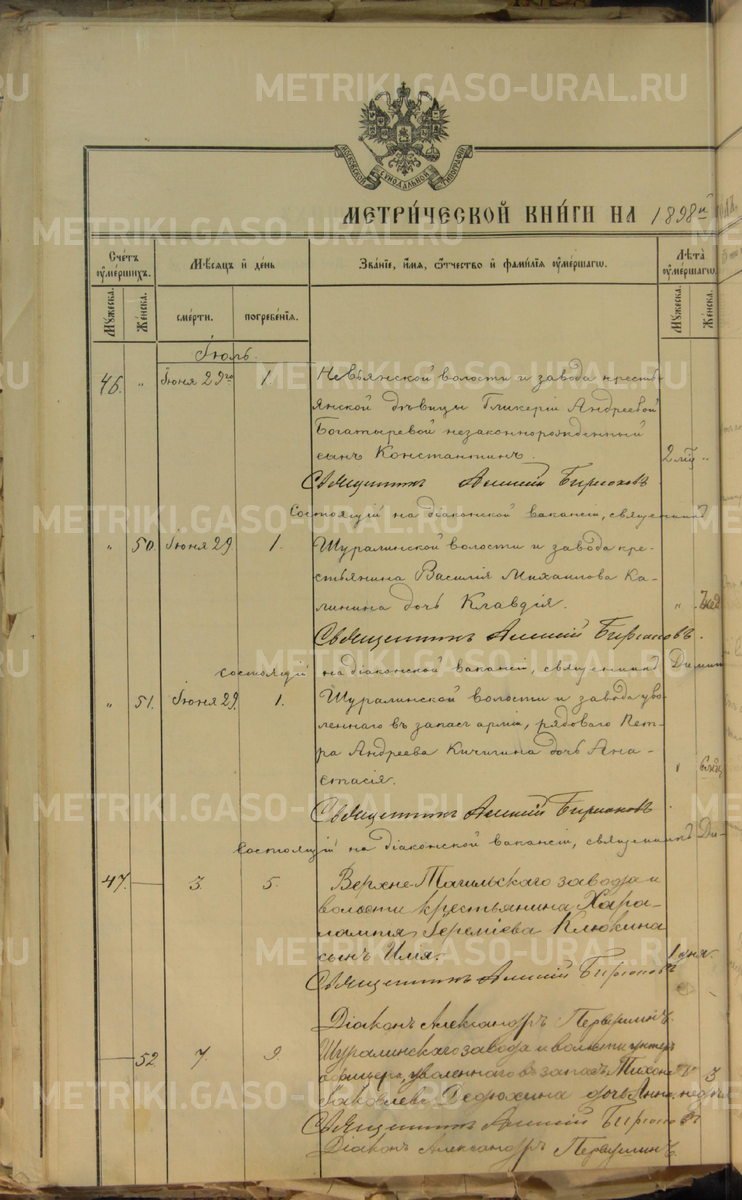 METRIKI.GASO-URAL.RU
МОСКОВСКОЙ СѴНОДАЛЬНОЙ ТИПОГРАФІИ
МЕТРИЧЕСКОЙ КНИГИ НА 1898й
Счетъ умершихъ.
Мѣсяцъ и день
Званіе, имя, отчество и фамилія умершаго.
Лѣта умершаго.
Мужеска.
Женска.
смерти.
погребенія.
Мужеска.
Женска.
Іюль.
46. " Іюня 29го 1. Невьянской волости и завода кресть-
янской дѣвицы Гликеріи Андреевой
Богатыревой незаконнорожденный
сынъ Константинъ. 2 мц "
Священникъ Алексій Бирюковъ
Состоящій на діаконской вакансіи, священникъ
" 50. Іюня 29 1. Шуралинской волости и завода кре-
стьянина Василія Михаилова Ка-
линина дочь Клавдія. "
Священникъ Алексій Бирюковъ.
состоящій на діаконской вакансіи, священникъ Димит
" 51. Іюня 29. 1. Шуралинской волости и завода уво-
леннаго въ запасъ арміи, рядоваго Пет-
ра Андреева Кичигина дочь Ана-
стасія.
Священникъ Алексій Бирюковъ
Состоящій на діаконской вакансіи, священникъ Ди-
47. — 3. 5. Верхне-Тагильскаго завода и
волости крестьянина Хара-
лампія Іереміева Клюкина
сынъ Илія. 1 дня.
Священникъ Алексій Бирюковъ
Діаконъ Александръ
— 52. 7. 9. Шуралинскаго завода и волости унтеръ
офицера, уволеннаго въ запасъ Тихона 3
Яковлева Дедюхина дочь Анна. недѣл
Священникъ Алексій Бирюковъ
Діаконъ Александръ